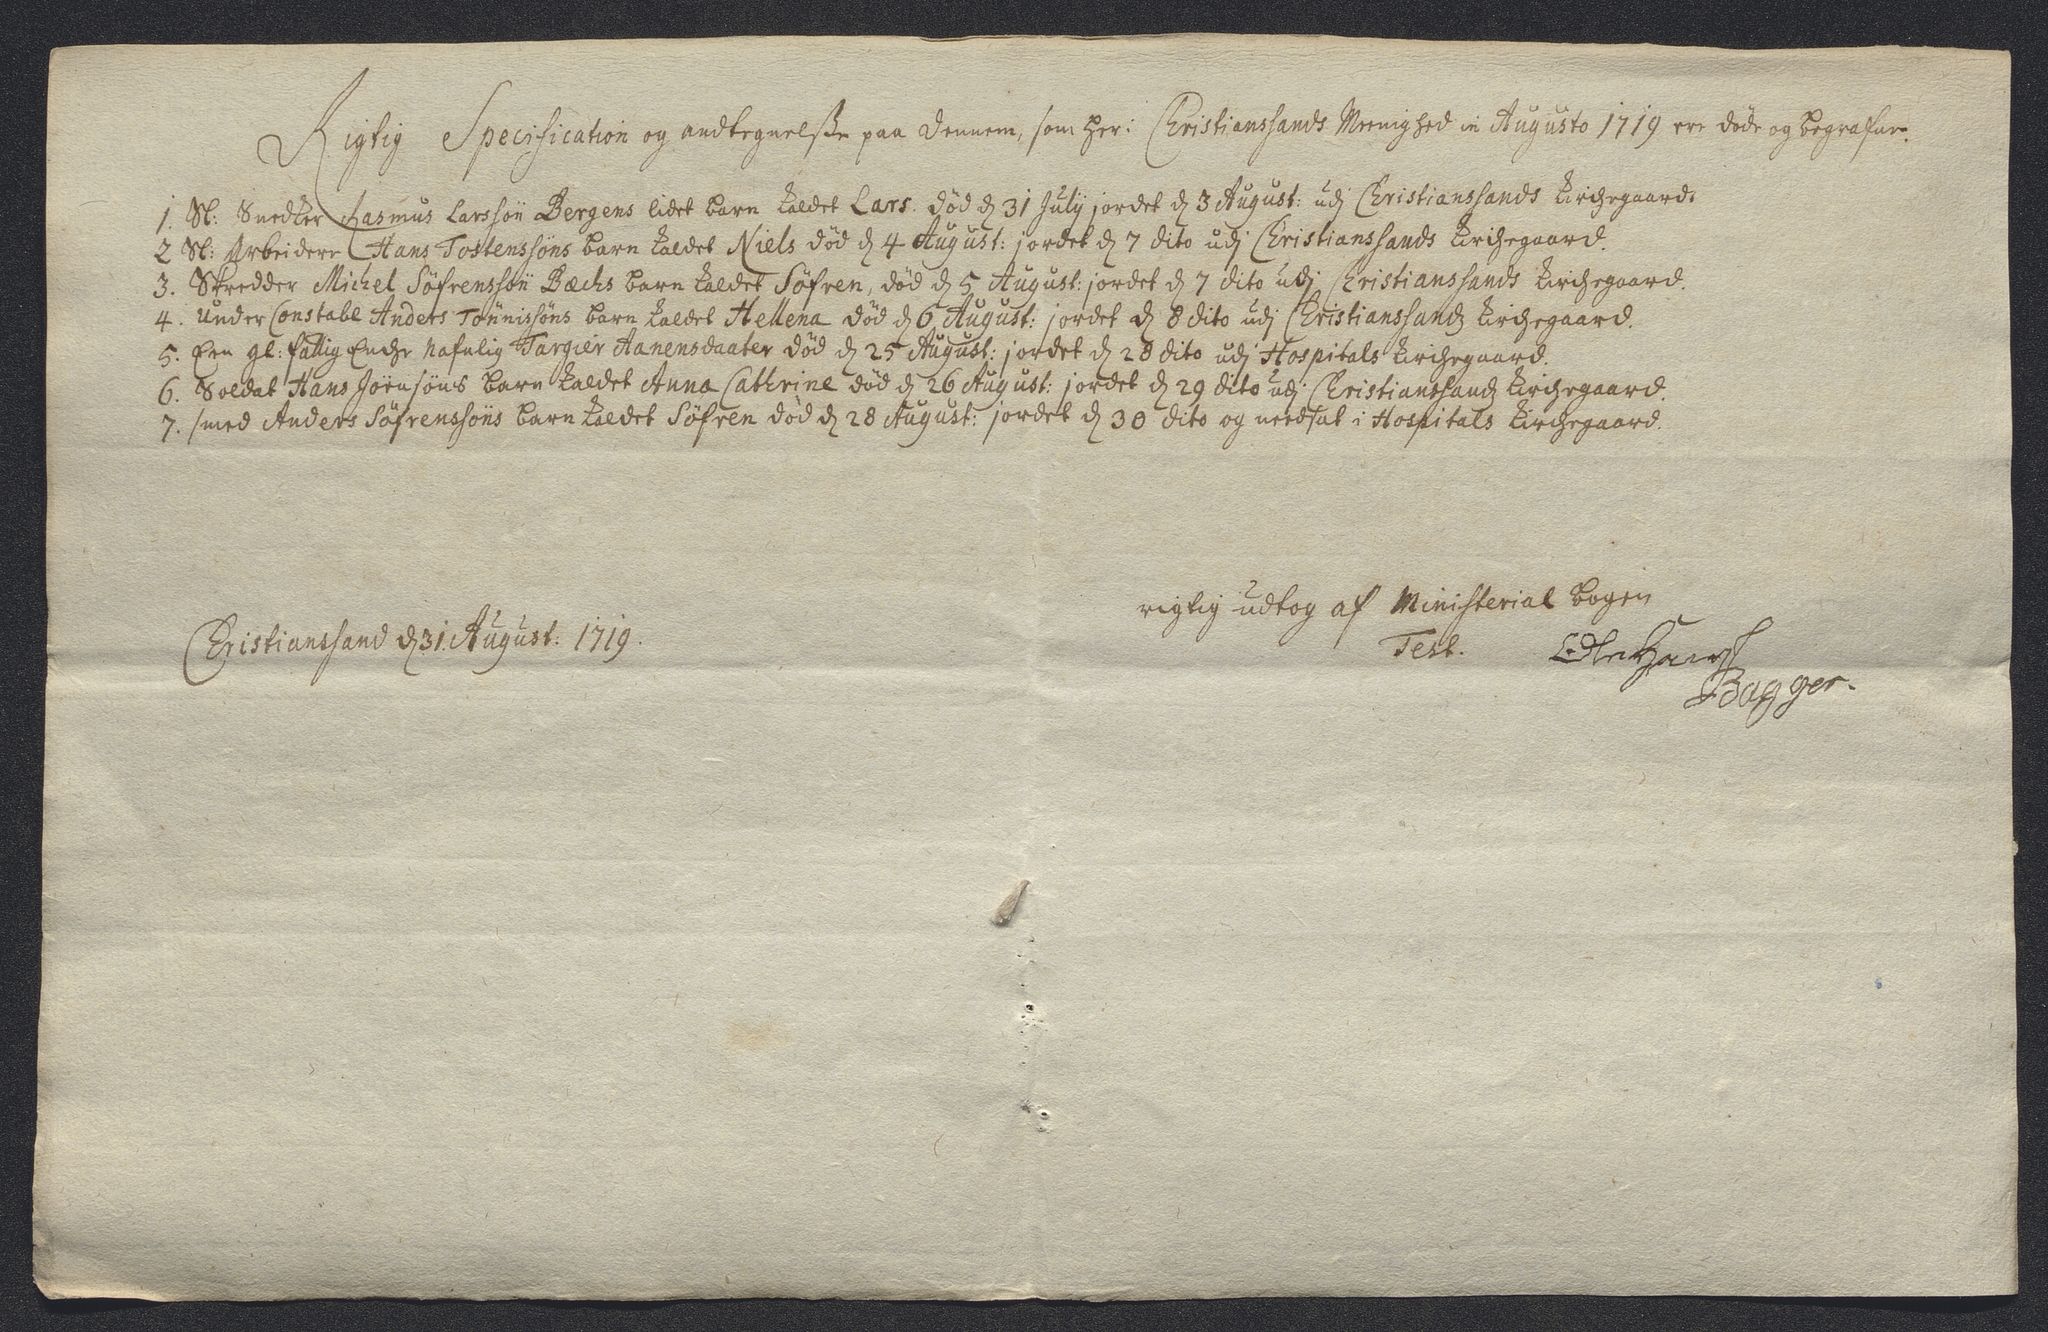 Rigtig Specification og andtegnelsse paa dennem, som her i Christianssands Meenighed in Augusto 1719 ere døde og begrafne.
1. Sl: Snedker Rasmus Larssøn Bergens lidet barn kaldet Lars. død d 31 July jordet d 3 August: udj Christianssands Kirchegaard.
2 Sl: Arbeidere Hans Tostenssøns barn kaldet Niels død d 4 August: jordet d 7 dito udj Christianssands Kirchegaard.
3. Skredder Michel Söfrenssön Bæchs barn kaldet Söfren, død d 5 August: jordet d 7 dito udj Christianssands Kirchegaard.
4. Under Constabl Anders Tönnissöns barn kaldet Hellena død d 6 August: jordet d 8 dito udj Christianssands Kirchegaard.
5. Een gl: fattig Enche nafnlig Targier Aanensdaater død d 25 August: jordet d 28 dito udj Hospitals Kirchegaard.
6. Soldat Hans Jörnsöns barn kaldet Anna Cathrine død d 26 August: jordet d 29 dito udj Christianssands Kirchegaard.
7. smed Anders Söfrenssöns barn kaldet Söfren død d 28 August: jordet d 30 dito og needsat i Hospitals Kirchegaard.
rigtig udtog af Ministerial bogen
Christianssand d 31. August: 1719.
Test.
Bagger.